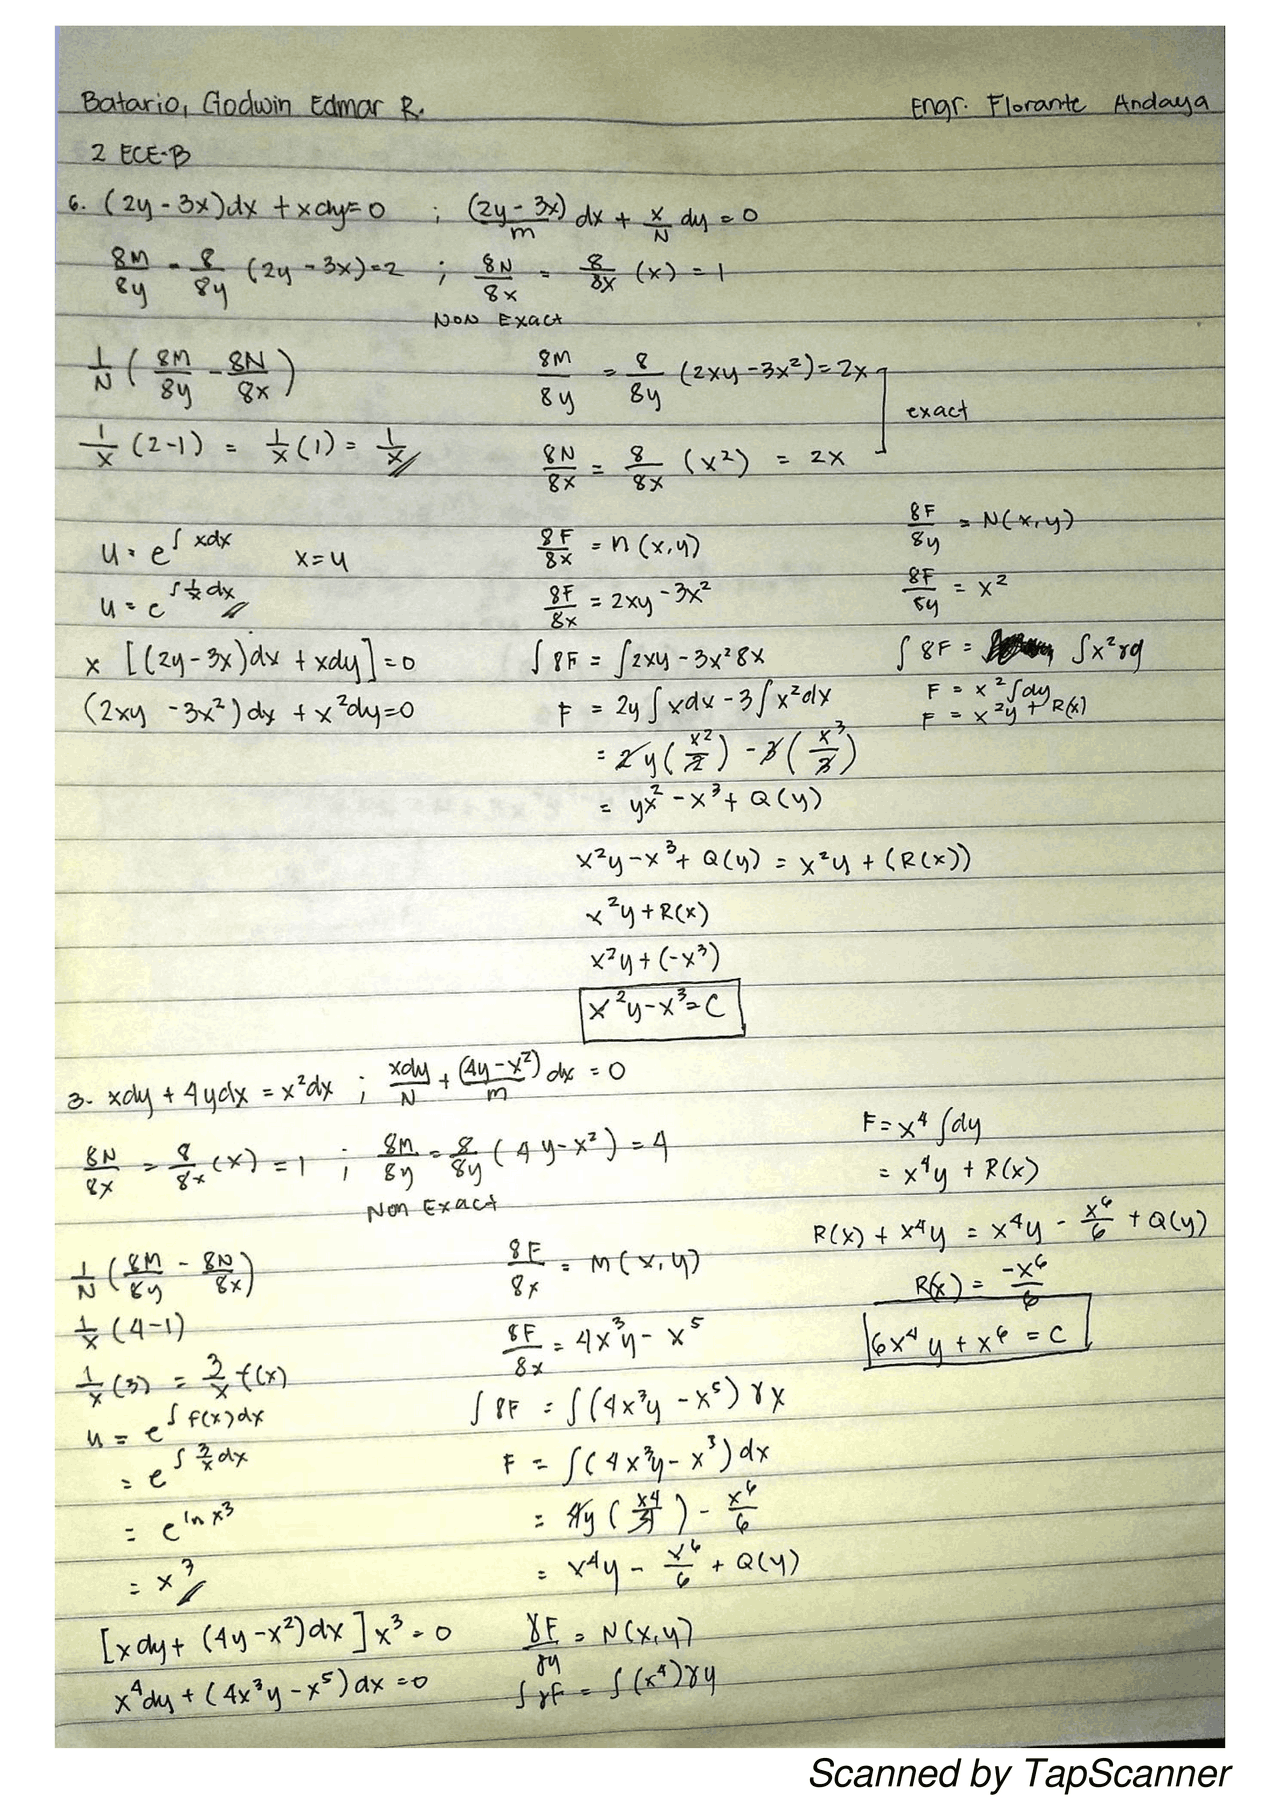 Batario, Godwin Edmar R.
Engr. Florante Andaya
2 ECE-B
6. (2y - 3x)dx + xdy = 0 ; (2y - 3x)/m dx + x/N dy = 0
8M/8y = 8/8y (2y - 3x) = 2 ; 8N/8x = 8/8x (x) = 1
NON Exact
1/N ( 8M/8y - 8N/8x )
1/x (2-1) = 1/x (1) = 1/x
u = e^∫xdx x = u
u = e^∫1/x dx
x [(2y - 3x)dx + xdy] = 0
(2xy - 3x²)dx + x²dy = 0
8M/8y = 8/8y (2xy - 3x²) = 2x
exact
8N/8x = 8/8x (x²) = 2x
8F/8x = n(x,y)
8F/8x = 2xy - 3x²
∫8F = ∫2xy - 3x² 8x
F = 2y∫xdx - 3∫x²dx
= 2y(x²/2) - 3(x³/3)
= yx² - x³ + Q(y)
8F/8y = N(x,y)
8F/8y = x²
∫8F = ∫x²γy
F = x²∫dy
F = x²y + R(x)
x²y - x³ + Q(y) = x²y + (R(x))
x²y + R(x)
x²y + (-x³)
x²y - x³ = C
3. xdy + 4ydx = x²dx ; xdy/N + (4y - x²)/m dx = 0
8N/8x = 8/8x (x) = 1 ; 8M/8y = 8/8y (4y - x²) = 4
Non Exact
1/N ( 8M/8y - 8N/8x )
1/x (4-1)
1/x (3) = 3/x f(x)
u = e^∫f(x)dx
= e^∫3/x dx
= e^ln x³
= x³
[xdy + (4y - x²)dx] x³ = 0
x⁴dy + (4x³y - x⁵)dx = 0
8F/8x = M(x,y)
8F/8x = 4x³y - x⁵
∫8F = ∫(4x³y - x⁵)γx
F = ∫(4x³y - x³)dx
= 4y(x4/4) - x⁶/6
= x⁴y - x⁶/6 + Q(y)
γF/γy = N(x,y)
∫γF = ∫(x⁴)γy
F = x⁴∫dy
= x⁴y + R(x)
R(x) + x⁴y = x⁴y - x⁶/6 + Q(y)
R(x) = -x⁶/6
6x⁴y + x⁶ = C
Scanned by TapScanner